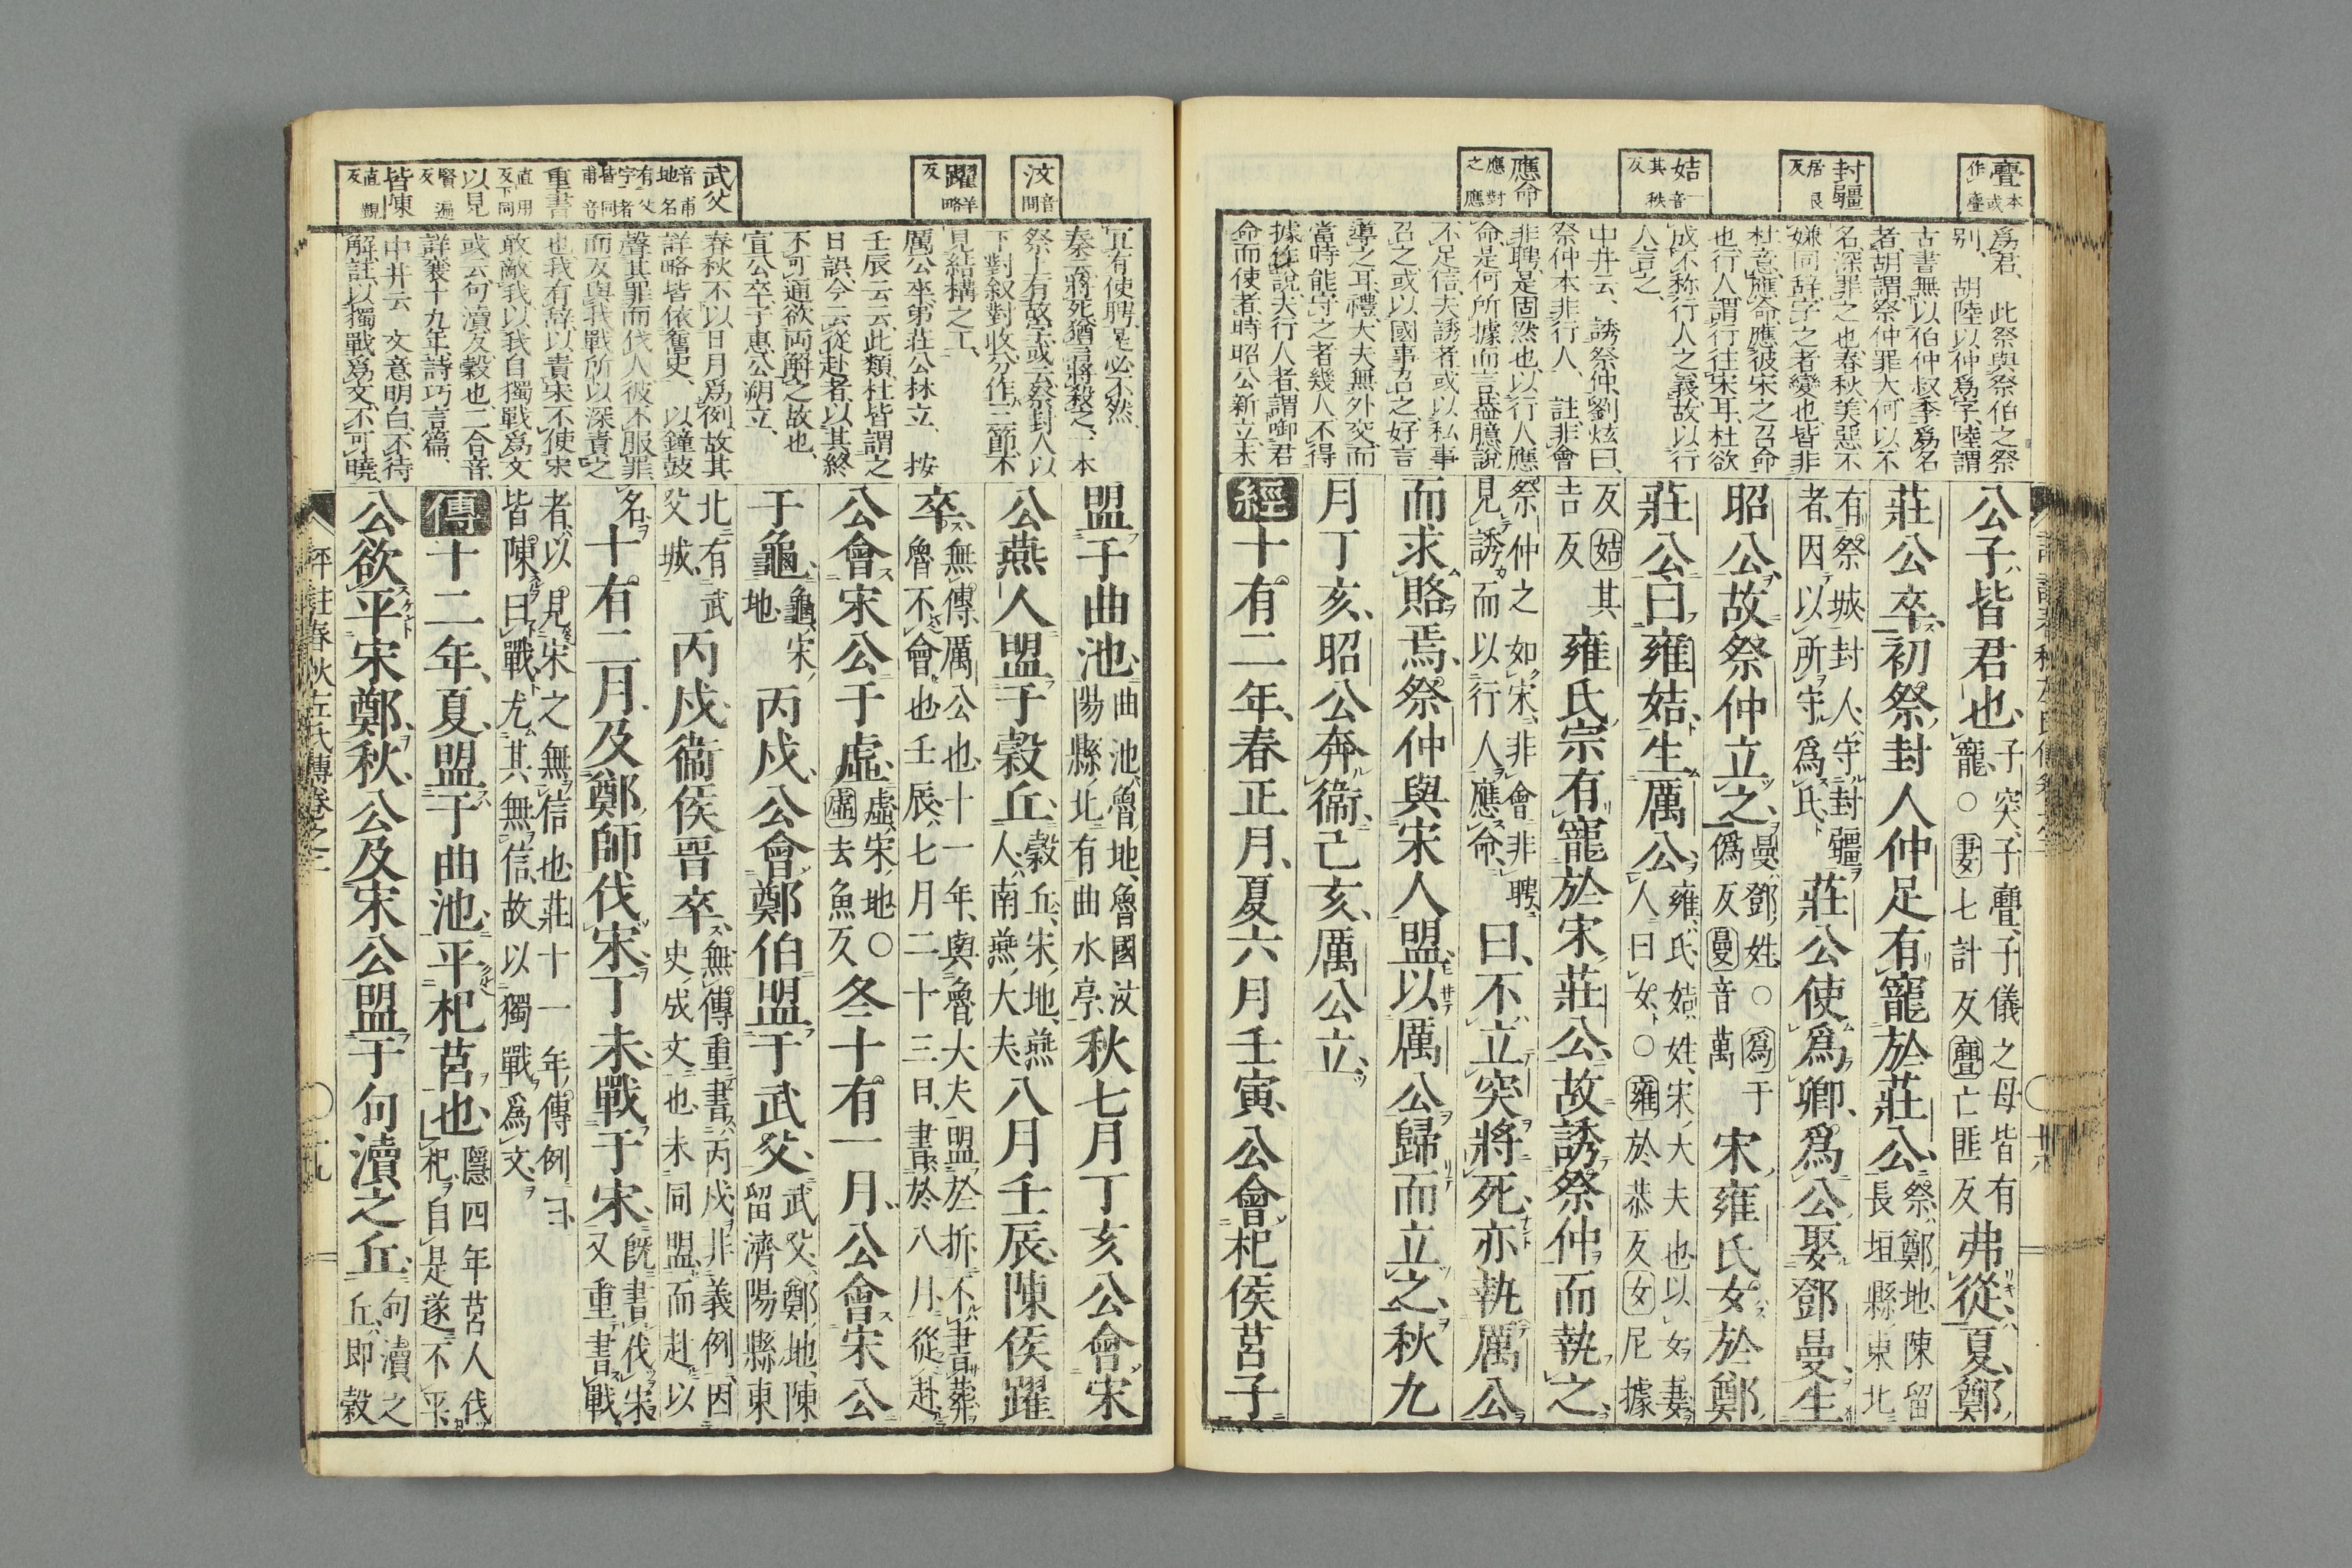 亹本或作亹
封疆居良反
姞一音其秩反
應命應對之應
爲君、此祭與祭伯之祭
別、胡陸以仲爲字、陸謂
古書無以伯仲叔季爲名
者、胡謂祭仲罪大、何以不
名、深罪之也、春秋美惡不
嫌同辭、字之者變也、皆非
杜意、應命應彼宋之召命
也、行人謂行往宋耳、杜欲
成不称行人之義、故以行
人言之、
中井云、誘祭仲、劉炫曰、
祭仲本非行人、註非會
非聘、是固然也、以行人應
命、是何所據而言、盖臆説
不足信、夫誘者或以私事
召之、或以國事召之、好言
導之耳、禮大夫無外交、而
當時能守之者幾人、不得
據作説、大行人者、謂啣君
命而使者、時昭公新立未
公子皆君也、子突、子亹、子儀之母皆有寵○妻七計反亹亡匪反弗從、夏、鄭
莊公卒、初祭封人仲足有寵於莊公、祭鄭地、陳留長垣縣東北
有祭城、封人、守封疆者、因以所守爲氏、莊公使爲卿、爲公娶鄧曼、生
昭公、故祭仲立之、曼、鄧姓○爲于僞反曼音萬宋雍氏女於鄭
莊公、曰雍姞、生厲公、雍氏、姞姓、宋大夫也、以女妻人曰女○雍於恭反女尼據
反姞其吉反雍氏宗有寵於宋莊公、故誘祭仲而執之、
祭仲之如宋、非會非聘、見誘而以行人應命、曰、不立突將死、亦執厲公
而求賂焉、祭仲與宋人盟、以厲公歸而立之、秋九
月丁亥、昭公奔衞、己亥、厲公立、
經十有二年、春正月、夏六月壬寅、公會杞侯莒子
汶音問
躍羊略反
武父音甫地名有父字者皆同甫音
重書直用反下同
以見賢遍反
皆陳直覲反
且有使聘、是必不然、
秦云、將死猶言將殺之、一本
祭上有故字、或云、祭封人以
下、對叙對收、分作三節、不
見結構之工、
厲公卒、弟莊公林立、按
壬辰云云、此類、杜皆謂之
日誤、今云從赴者、以其終
不可通、欲両解之故也、
宣公卒、子惠公朔立、
春秋不以日月爲例、故其
詳略皆依舊史、以鐘鼓
聲其罪而伐人、彼不服罪
而反與我戰、所以深責之
也、我有辞以責宋、不使宋
敢敵我、以我自獨戰爲文
或云、句瀆反、穀也、二合音、
詳襄十九年詩巧言篇、
中井云、文意明白、不待
解註、以獨戰爲文、不可曉、
盟于曲池、曲池、魯地、魯國汶陽縣北有曲水亭、秋七月丁亥、公會宋
公燕人盟于穀丘、穀丘、宋地、燕人、南燕大夫、八月壬辰、陳侯躍
卒、無傳、厲公也、十一年與魯大夫盟於折、不書葬、魯不會也、壬辰、七月二十三日、書於八月、從赴、
公會宋公于虛、虛、宋地○虛去魚反冬十有一月、公會宋公
于龜、龜、宋地、丙戌、公會鄭伯盟于武父、武父、鄭地、陳留濟陽縣東
北有武父城、丙戌、衞侯晉卒、無傳、重書丙戌、非義例、因史成文也、未同盟而赴以
名、十有二月、及鄭師伐宋、丁未、戰于宋、既書伐宋、又重書戰
者、以見宋之無信也、莊十一年傳例曰、皆陳曰戰、尤其無信、故以獨戰爲文、
傳十二年、夏、盟于曲池、平杞莒也、隱四年莒人伐杞、自是遂不平、
公欲平宋鄭、秋、公及宋公盟于句瀆之丘、句瀆之丘、即穀
評註春秋左氏傳卷之二